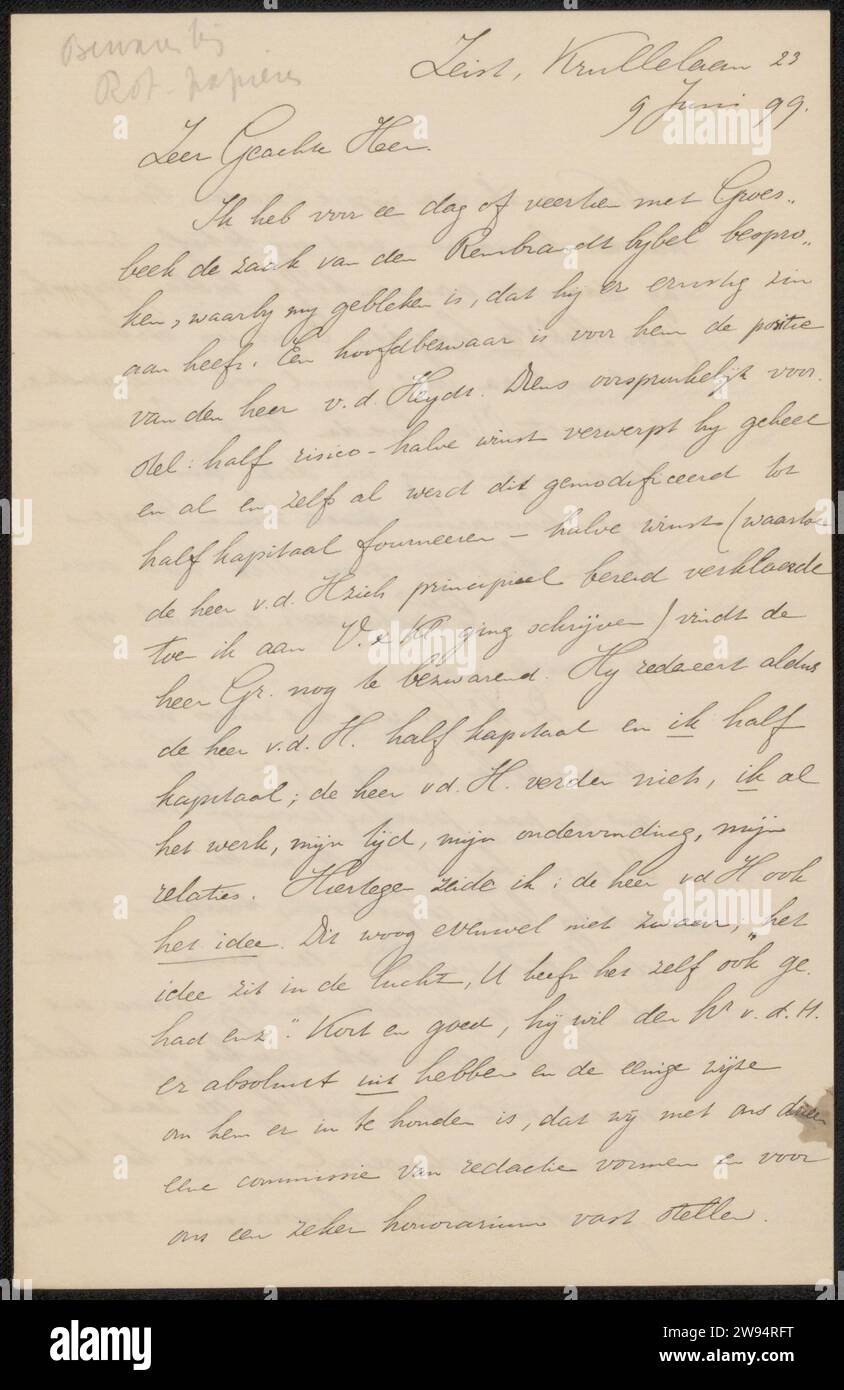 Bewaren bij
Rot-papieren
Zeist, Krullelaan 23
9 Juni 99.
Zeer Geachte Heer.
Ik heb voor een dag of veertien met Groes„
beek de zaak van den Rembrandt bijbel bespro„
ken, waarbij mij gebleken is, dat hij er ernstig zin
aan heeft. Een hoofdbezwaar is voor hem de positie
van den heer v.d. Heydt. Diens oorspronkelijk voor.
stel: half risico - halve winst verwerpt hij geheel
en al en zelfs al werd dit gemodificeerd tot
half kapitaal fourneeren - halve winst (waartoe
de heer v.d. H zich principieel bereid verklaarde
toe ik aan V. & Kl ging schrijven) vindt de
heer Gr. nog te bezwarend. Hij redeneert aldus
de heer v.d. H. half kapitaal en ik half
kapitaal; de heer v.d. H. verder niets, ik al
het werk, mijn tijd, mijn ondervinding, mijn
relaties. Hiertegen zeide ik: de heer v.d H ook
het idee. Dit woog evenwel niet zwaar; „het
idee zit in de lucht, U heeft het zelf ook ge.
had enz". Kort en goed, hij wil den hr v.d. H.
er absoluut uit hebben en de eenige wijze
om hem er in te houden is, dat wij met ons drieën
eene commissie van redactie vormen en voor
ons een zeker honorarium vast stellen.
alamy
Image ID: 2W94RFT
www.alamy.com